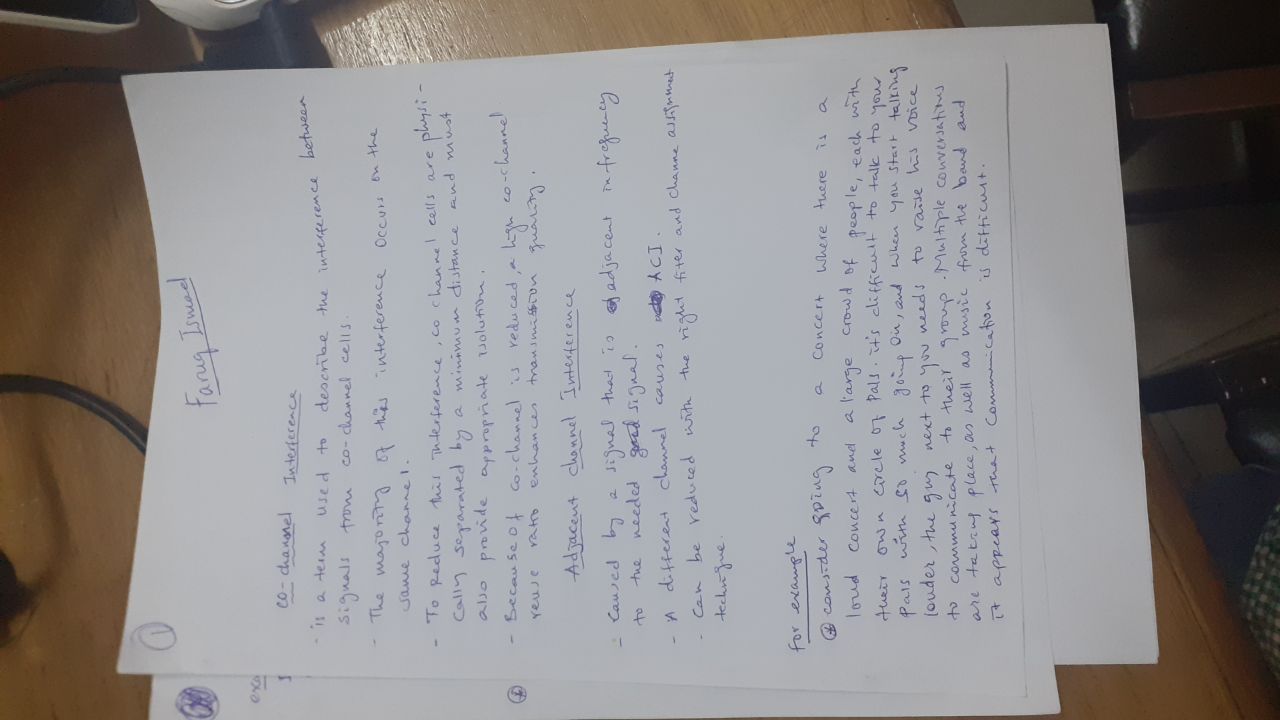 1
Faruq Ismael
co-channel Interference
- is a term used to describe the interference between
signals from co-channel cells.
- The majority of this interference occurs on the
same channel.
- To Reduce this interference, co channel cells are physi-
cally separated by a minimum distance and must
also provide appropriate isolution.
- Because of co-channel is reduced, a high co-channel
reuse ratio enhances transmission quality.
Adjacent channel Interference
- Caused by a signal that is adjacent in frequency
to the needed signal.
- A different channel causes ACI.
- Can be reduced with the right fiter and channe assignment
technique.
for example
consider going to a concert where there is a
loud concert and a large crowd of people, each with
their own circle of pals. it's difficult to talk to your
pals with so much going on, and when you start talking
louder, the guy next to you needs to raise his voice
to communicate to their group. Multiple conversations
are taking place, as well as music from the band and
it appears that communication is difficult.
exa